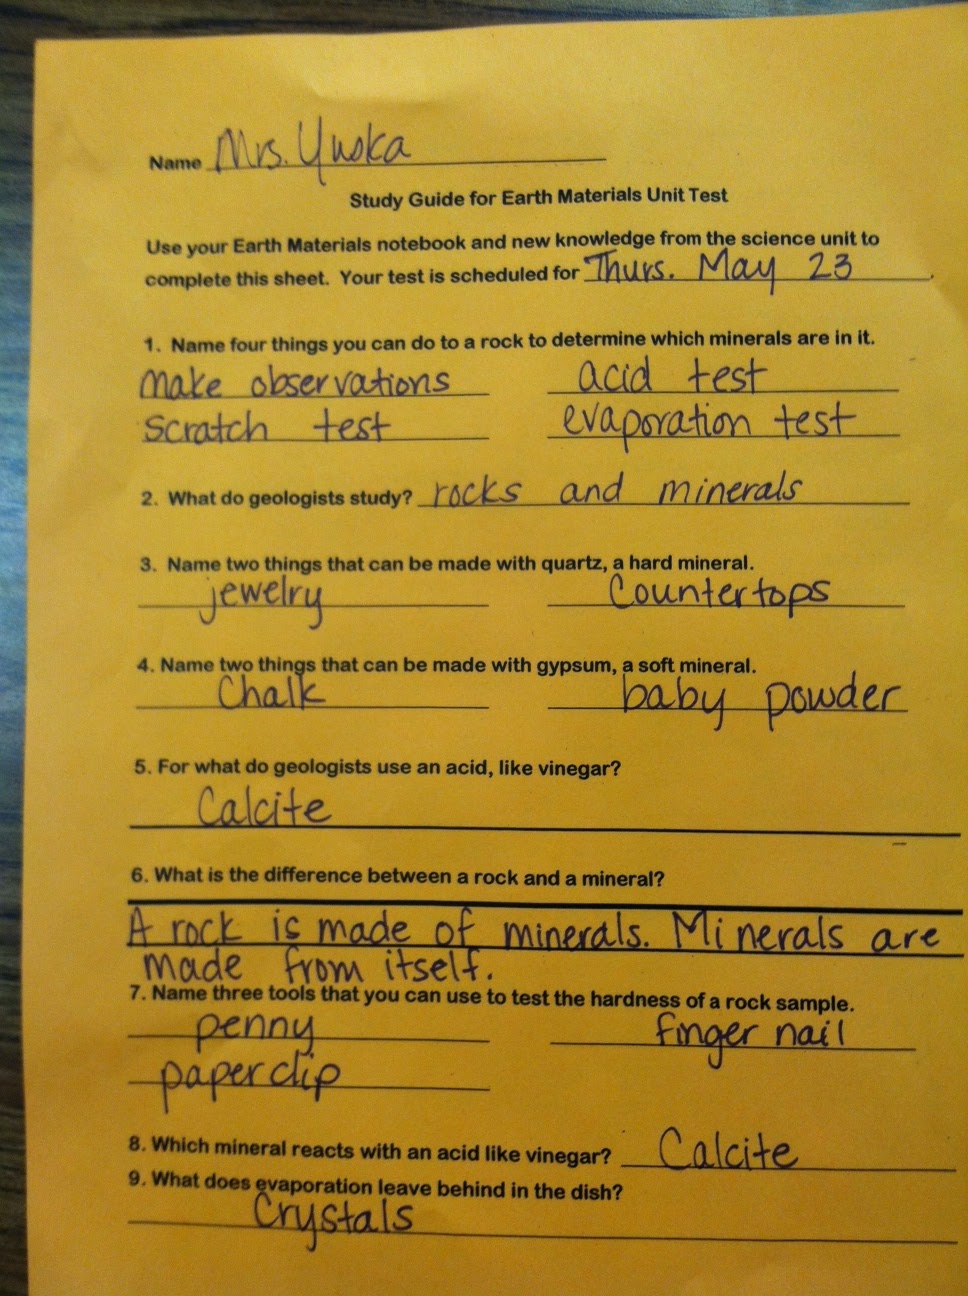 Name Mrs. Yuska
Study Guide for Earth Materials Unit Test
Use your Earth Materials notebook and new knowledge from the science unit to
complete this sheet. Your test is scheduled for Thurs. May 23.
1. Name four things you can do to a rock to determine which minerals are in it.
make observations acid test
scratch test evaporation test
2. What do geologists study? rocks and minerals
3. Name two things that can be made with quartz, a hard mineral.
jewelry Countertops
4. Name two things that can be made with gypsum, a soft mineral.
Chalk baby powder
5. For what do geologists use an acid, like vinegar?
Calcite
6. What is the difference between a rock and a mineral?
A rock is made of minerals. Minerals are
made from itself.
7. Name three tools that you can use to test the hardness of a rock sample.
penny finger nail
paperclip
8. Which mineral reacts with an acid like vinegar? Calcite
9. What does evaporation leave behind in the dish?
Crystals